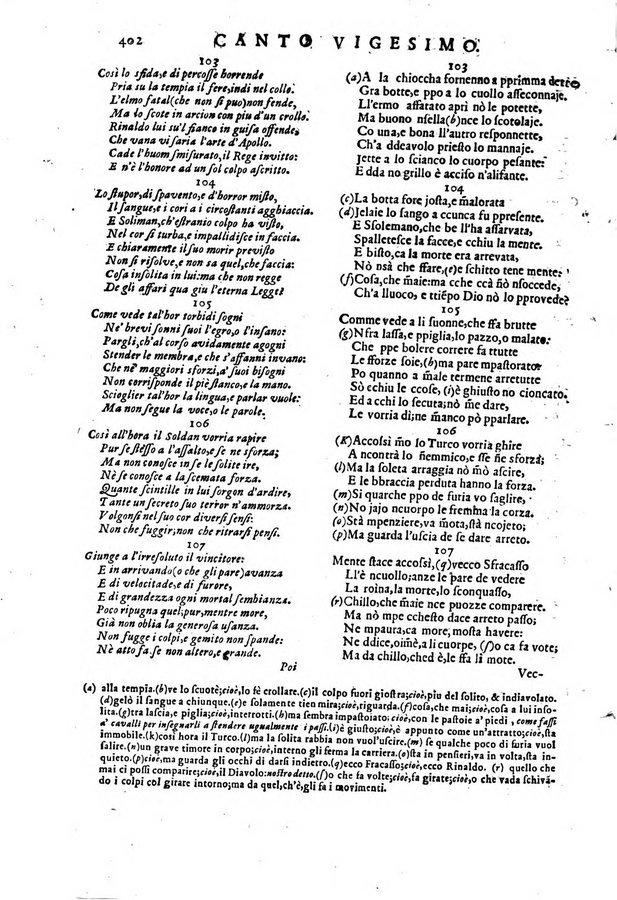 402 CANTO VIGESIMO.
103
Così lo sfida, e di percosse horrende
Pria su la tempia il fere, indi nel collo.
L'elmo fatal (che non si può) non fende,
Ma lo scote in arcion con piu d'un crollo.
Rinaldo lui su'l fianco in guisa offende,
Che vana vi saria l'arte d'Apollo.
Cade l'huom smisurato, il Rege invitto:
E n'è l'honore ad un sol colpo ascritto.
104
Lo stupor, di spavento, e d'horror misto,
Il sangue, e i cori a i circostanti agghiaccia.
E Soliman, ch'estranio colpo ha visto,
Nel cor si turba, e impallidisce in faccia.
E chiaramente il suo morir previsto
Non si risolve, e non sa quel, che faccia:
Cosa insolita in lui: ma che non regge
De gli affari qua giu l'eterna Legge?
105
Come vede tal'hor torbidi sogni
Ne' brevi sonni suoi l'egro, o l'insano:
Pargli, ch'al corso avidamente agogni
Stender le membra, e che s'affanni invano:
Che ne' maggiori sforzi, a' suoi bisogni
Non corrisponde il piè stanco, e la mano.
Scioglier tal'hor la lingua, e parlar vuole:
Ma non segue la voce, o le parole.
106
Così all'hora il Soldan vorria rapire
Pur se stesso a l'assalto, e se ne sforza;
Ma non conosce in se le solite ire,
Nè se conosce a la scemata forza.
Quante scintille in lui sorgon d'ardire,
Tante un secreto suo terror n'ammorza.
Volgonsi nel suo cor diversi sensi:
Non che fuggir; non che ritrarsi pensi.
107
Giunge a l'irresoluto il vincitore:
E in arrivando (o che gli pare) avanza
E di velocitade, e di furore,
E di grandezza ogni mortal sembianza.
Poco ripugna quel; pur, mentre more,
Già non oblia la generosa usanza.
Non fugge i colpi, e gemito non spande:
Nè atto fa, se non altero, e grande.
Poi
103
(a) A la chioccha fornenno a pprimma detto
Gra botte, e ppo a lo cuollo assecconnaje.
Ll'ermo affatato aprì nò le potette,
Ma buono nsella (b) nce lo scotolaje.
Co una, e bona ll'autro responnette,
Ch'a ddeavolio priesto lo mannaje.
Jette a lo scianco lo cuorpo pesante:
E dda no grillo è acciso n'alifante.
104
(c) La botta fore josta, e malorata
(d) Jelaie lo sango a ccunca fu ppresente.
E Ssolemano, che be ll'ha assarvata,
Spalletesce la facce, e cchiu la mente.
E bisto, ca la morte era arrevata,
Nò nsà che ffare, (e) e schitto tene mente:
(f) Cosa, che maie: ma cche ccà nò nsoccede,
Ch'a lluoco, e ttiẽpo Dio nò lo pprovede?
105
Comme vede a li suonne, che ffa brutte
(g) Nfra lassa, e ppiglia, lo pazzo, o malato:
Che ppe bolere correre fa ttutte
Le fforze soie, (h) ma pare mpastorato
Po quanno a m̃ale termene arretutte
Sò cchiu le ccose, (i) è ghiusto no cioncato.
Ed a cchi lo secuta; nò me dare,
Le vorria di; ne manco pò pparlare.
106
(K) Accossì m̃o lo Turco vorria ghire
A ncontrà lo ñemmico, e sse ñe sforza;
(l) Ma la soleta arraggia nò mò ascire,
E le bbraccia perduta hanno la forza.
(m) Si quarche ppo de furia vo saglire,
(n) No jajo ncuorpo le frem̃na la corza.
(o) Stà mpenziere, va m̃ota, stà ncojeto;
(p) Ma guarda l'uscia de se dare arreto.
107
Mente stace accossì, (q) vecco Sfracasso
Ll'è ncuollo; anze le pare de vedere
La roina, la morte, lo sconquasso,
(r) Chillo, che m̃aie nce puozze comparere.
Ma nò mpe cchesto dace arreto passo;
Ne mpaura, ca more, mosta havere:
Ne ddice, oimè, a li cuorpe, (s) o ca fa vote;
Ma da chillo, ched è, le ffa li mote.
Vec-
(a) alla tempia. (b) ve lo scuotè; cioè, lo fè crollare. (c) il colpo fuori giostra; cioè, piu del solito, & indiavolato.
(d) gelò il sangue a chiunque. (e) e solamente tien mira; cioè, riguarda. (f) cosa, che mai; cioè, cosa a lui inso-
lita. (g) tra lascia, e piglia; cioè, interrotti. (h) ma sembra impastoiato; cioè, con le pastoie a' piedi, come fassi
a' cavalli per insegnarli a stendere ugualmente i passi. (i) è giusto; cioè, è appunto come un'attratto; cioè, stà
immobile. (k) così hora il Turco. (l) ma la solita rabbia non vuol'uscire. (m) se qualche poco di furia vuol
salire. (n) un grave timore in corpo; cioè, interno gli ferma la corsa. (o) sta in pensieri, va in volta, sta in-
quieto. (p) cioè, ma guarda gli occhi di darsi indietro. (q) ecco Fracasso; cioè, ecco Rinaldo. (r) quello che
mai ci possi comparire; cioè, il Diavolo: nostro detto. (s) o che fa volte; cioè, fa girate; cioè, o che vada schivã-
do i colpi col girare intorno; ma da quel, ch'è, gli fa i movimenti.